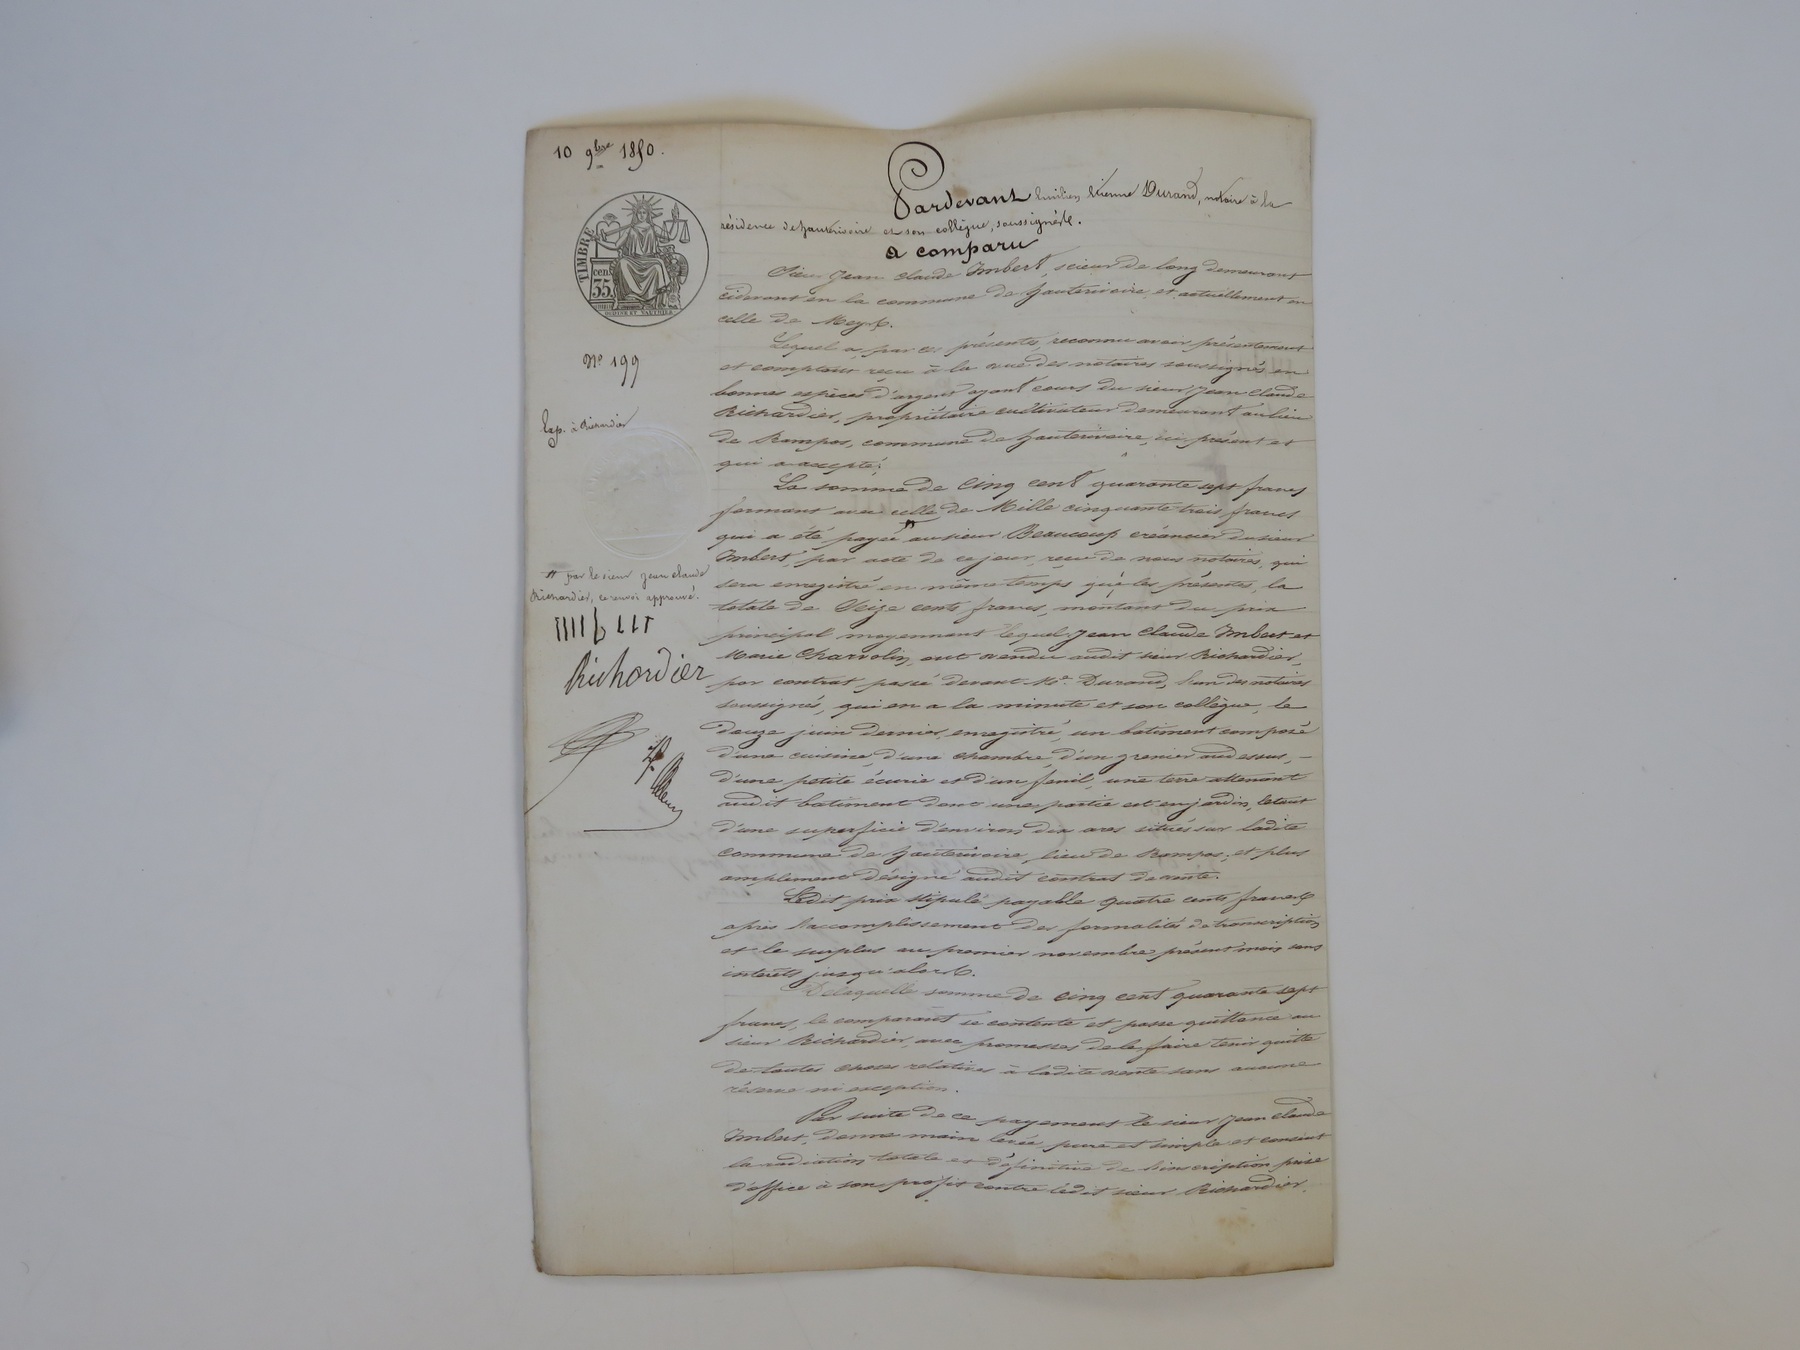 10 9bre 1850.
TIMBRE
cen.
35
Nº 199
Exp. à Richardier
# par le sieur Jean Claude
Richardier, ce renvoi approuvé.
Richardier
Pardevant Emilien Etienne Durand, notaire à la
résidence de hauterivoire et son collègue, soussignés.
a comparu
Sieur Jean Claude Imbert, scieur de long demeurant
cidevant en la commune de hauterivoire, et actuellement en
celle de Meys.
Lequel a, par ces présentes, reconnu avoir présentement
et comptant reçu à la vue des notaires soussignés en
bonnes espèces d'argent ayant cours du sieur Jean Claude
Richardier, propriétaire cultivateur demeurant au lieu
de Rampos, commune de hauterivoire, ici présent et
qui a accepté;
La somme de Cinq cent quarante sept francs
formant avec celle de Mille cinquante trois francs
qui a été payée # au sieur Beaucoup créancier du sieur
Imbert, par acte de ce jour, reçu de nous notaires, qui
sera enregistré en même temps que les présentes, la
totale de Seize cents francs, montant du prix
principal moyennant lequel Jean Claude Imbert et
Marie Charvolin, ont vendu audit sieur Richardier,
par contrat passé devant Me. Durand, l'un des notaires
soussignés, qui en a la minute et son collègue, le
douze juin dernier, enregistré, un batiment composé
d'une cuisine, d'une chambre, d'un grenier au dessus, -
d'une petite écurie et d'un fenil, une terre attenant
audit batiment dont une partie est en jardin, le tout
d'une superficie d'environ dix ares situés sur ladite
commune de hauterivoire, lieu de Rampos, et plus
amplement désigné audit contrat de vente.
Ledit prix stipulé payable quatre cents francs
après l'accomplissement des formalités de transcription
et le surplus au premier novembre présent mois sans
intérêts jusqu'alors.
De laquelle somme de cinq cent quarante sept
francs, le comparant se contente et passe quittance au
sieur Richardier, avec promesses de le faire tenir quitte
de toutes choses relatives à ladite vente sans aucune
réserve ni exception.
Par suite de ce payement le sieur Jean Claude
Imbert, donne main levée pure et simple et consent
la radiation totale et définitive de l'inscription prise
d'office à son profit contre ledit sieur Richardier.